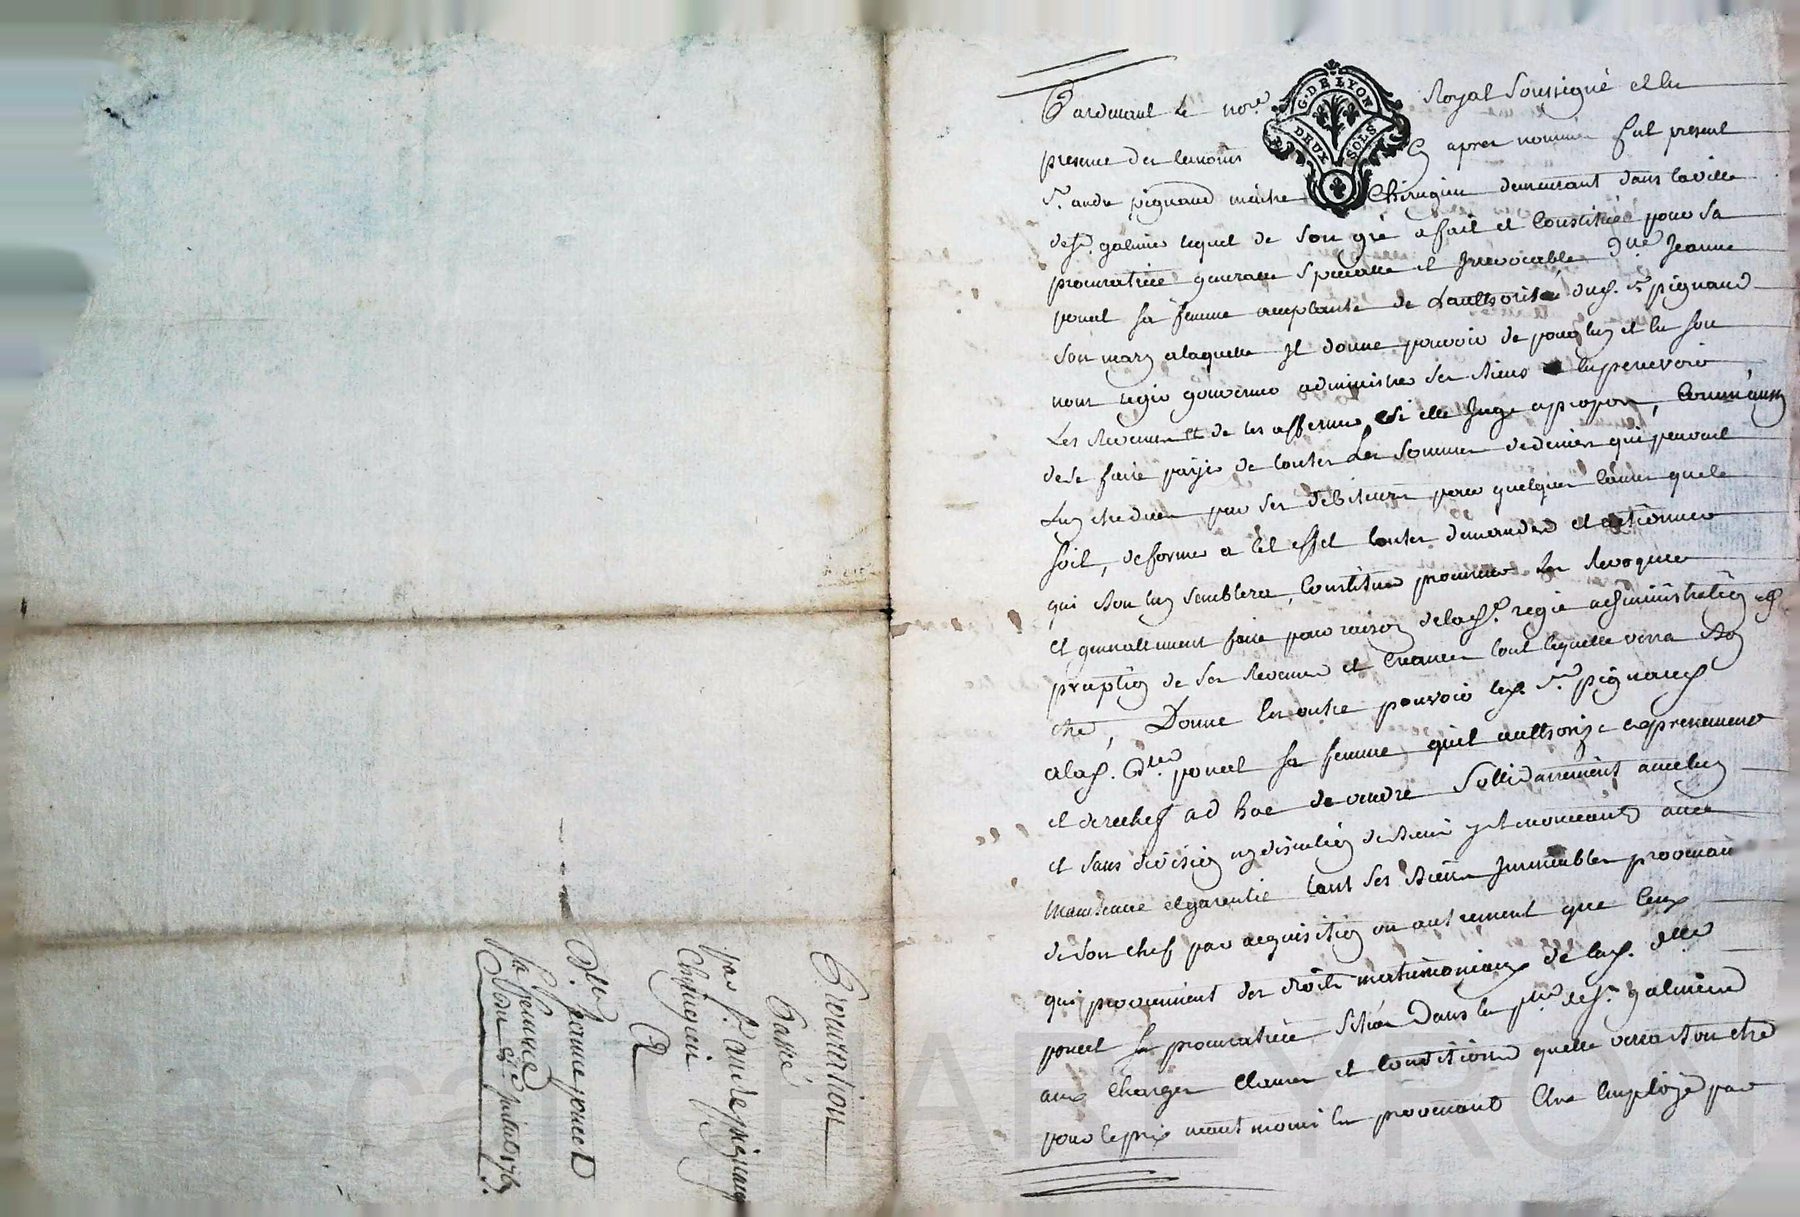 Pardevant le no.re Royal soussigné et en
presence des temoins cy apres nommés fut present
G. DE LYON
DEUX SOLS
S.r andré pignaud maitre Chirugien demeurant dans la ville
de S.t galmier lequel de son gré a fait et constitué pour sa
procuratrice generalle specialle et Irrevocable d.lle Jeanne
poncet sa femme acceptante de l'authorité dud. S.r pignaud
son mary a laquelle Il donne pouvoir de pour luy et en son
nom regir gouverner administrer ses biens en percevoir
Les Revenus et de les affermer si elle Juge apropos, Comm'aussy
de se faire payer de toutes Les sommes de deniers qui peuvent
Luy etre dues par ses debiteurs pour quelques causes que ce
soit, de former a cet effet toutes demandes et actionner
qui bon luy semblera, Constituer procureur les Revoquer
et generalement faire pour raison de lad. regie administration et
preception de ses Revenus et Creances tout cequelle verra bon
etre, Donne En outre pouvoir led. S.r pignaud
alad. D.lle poncet sa femme quil authorize expressement
et derechef ad hoc de vendre sollidairement avecluy
et sans division ny discution de biens y Renonceants avec
Maintenue et garentie tant ses biens Immeubles provenant
de son chef par acquisition ou autrement que ceux
qui proviennent des droits matrimoniaux de lad. d.lle
poncet sa procuratrice situés dans la p.sse de S.t galmier
aux charges clauses et conditions quelle verra bon etre
pour le prix neantmoins en provenant Etre Employé par
Procuration
Passé
par S.r andré pignaud
Chirugien
A
D.lle Jeanne poncet
sa femme